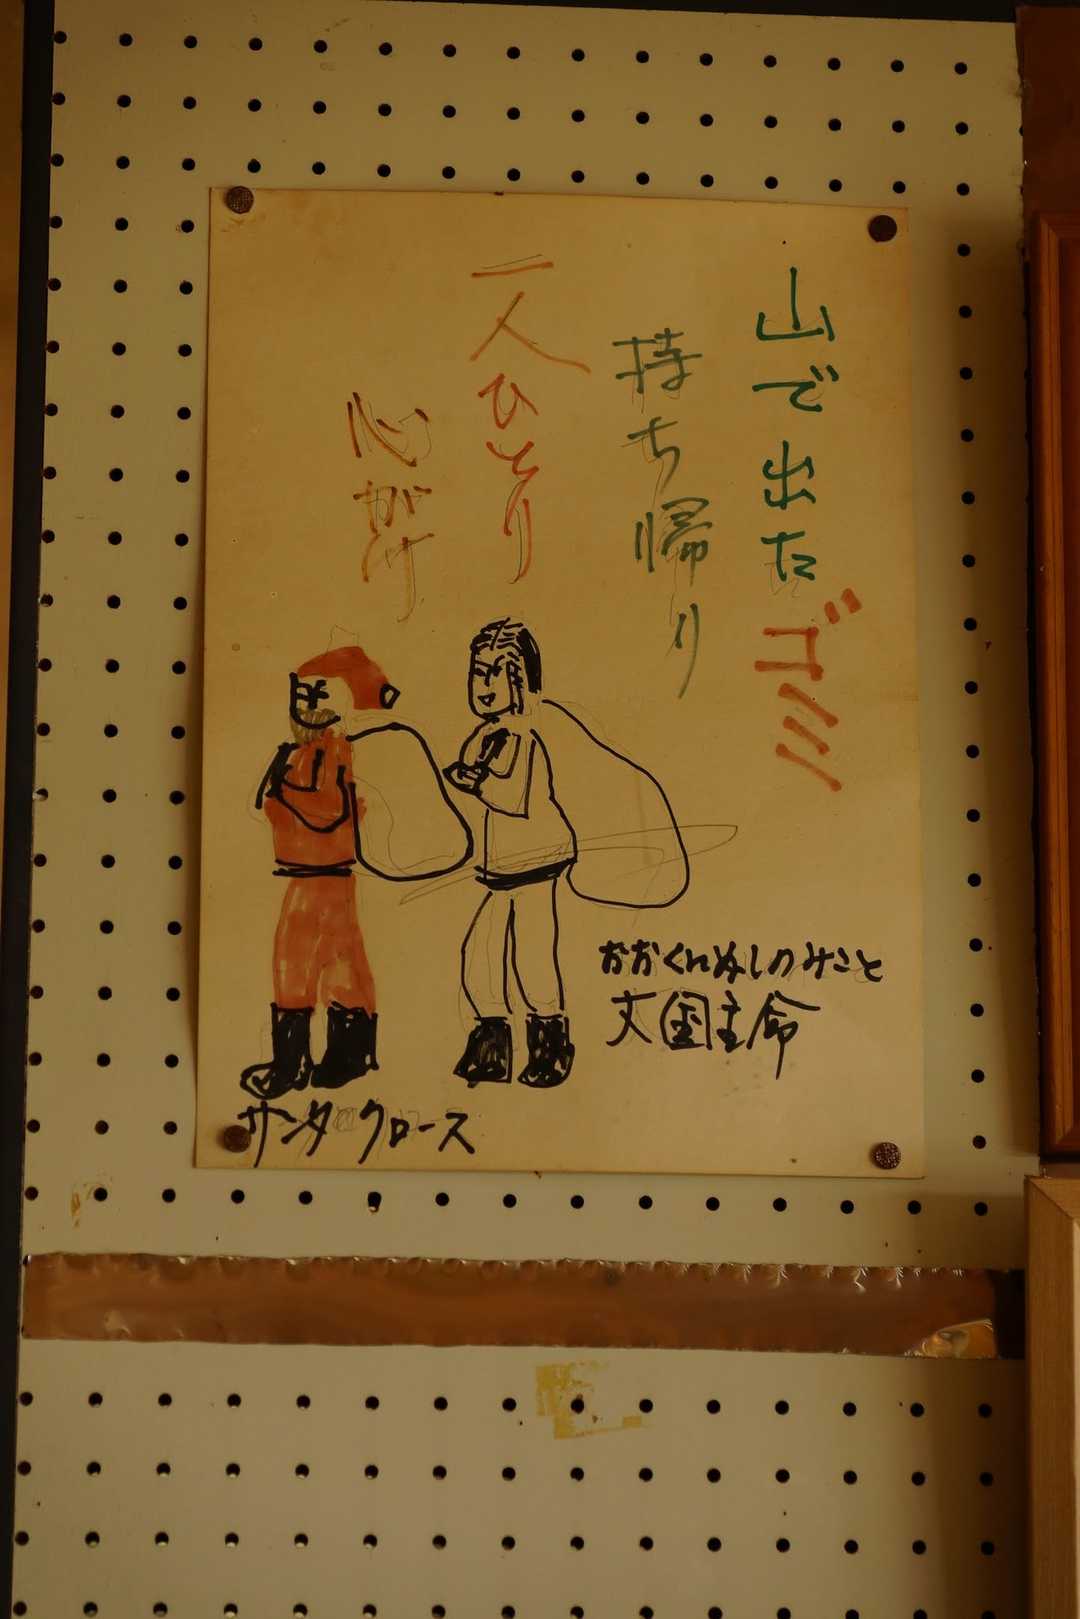 山で出たゴミ
持ち帰り
一人ひとり
心がけ
おおくにぬしのみこと
大国主命
サンタクロース